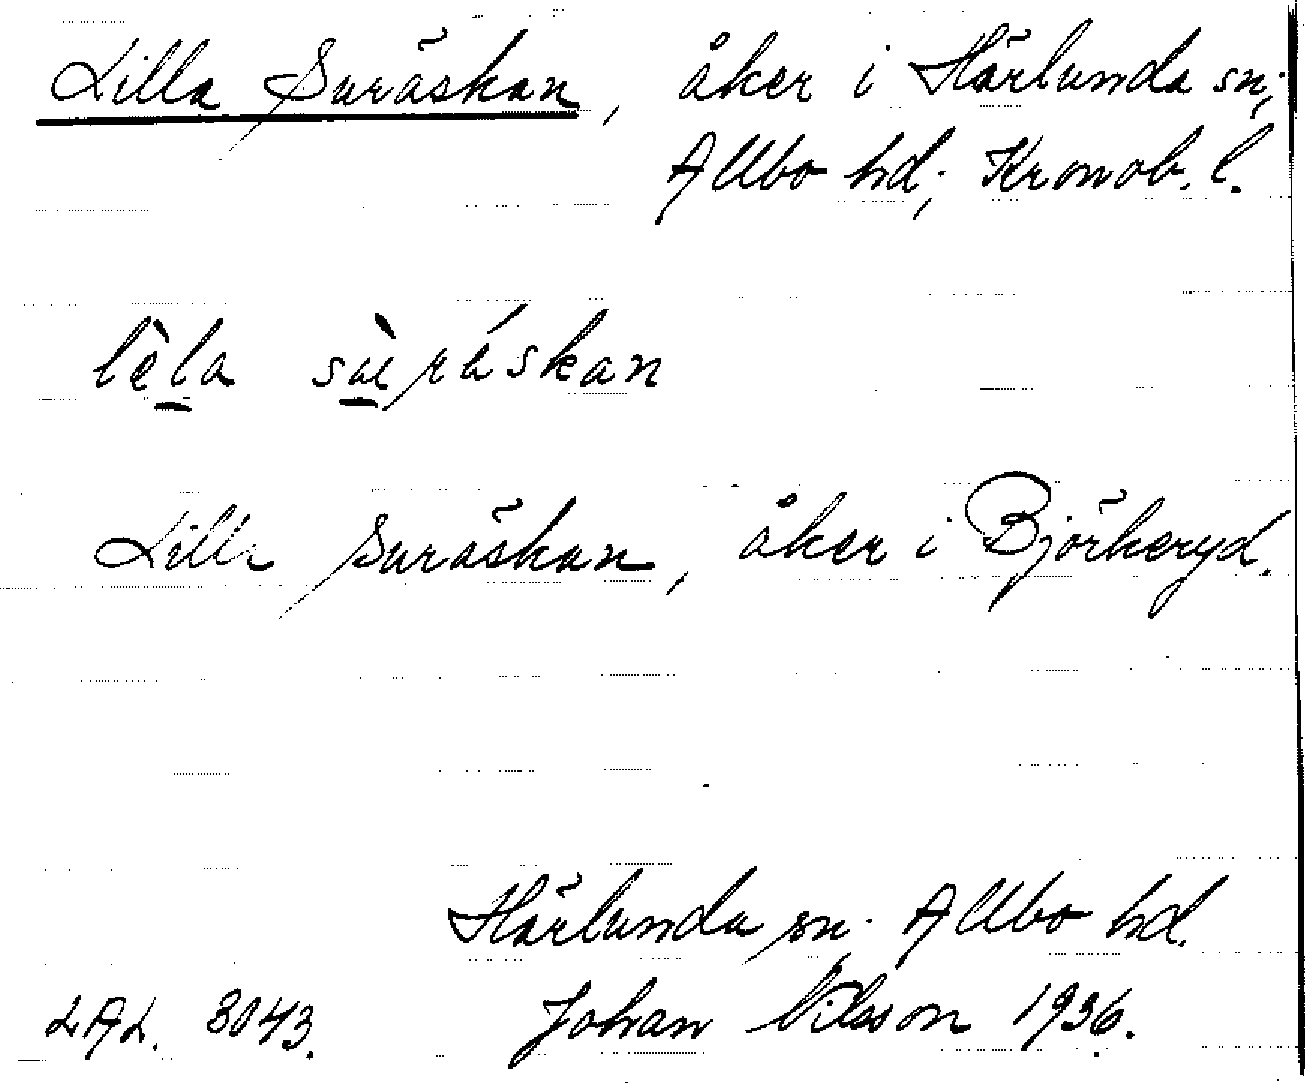 Lilla Suräskan, åker i Härlunda sn;
Allbo hd; Kronob. l.
lèla sùráskan
Lilla Suräskan, åker i Björkeryd.
Härlunda sn. Allbo hd.
LAL. 3043. Johan Nilsson 1936.